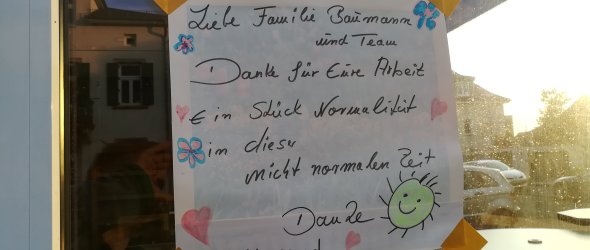 Liebe Familie Baumann
und Team
Danke für Eure Arbeit
Ein Stück Normalität
in dieser
nicht normalen Zeit
Danke